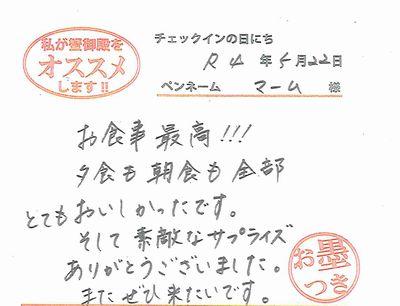 私が蟹御殿を
オススメ
します!!
チェックインの日にち
R4年5月22日
ペンネーム マーム 様
お食事最高!!!
夕食も朝食も全部
とてもおいしかったです。
そして素敵なサプライズ
ありがとうございました。
またぜひ来たいです。
お墨
つき